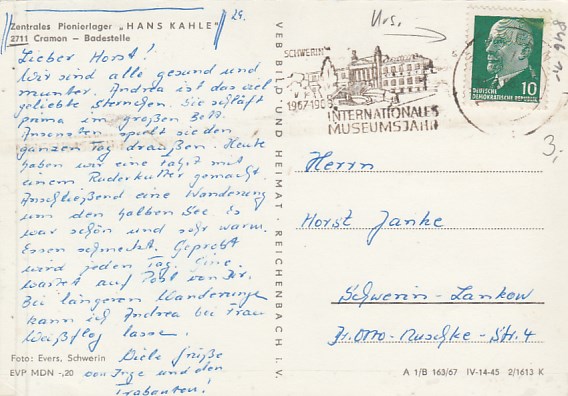 Zentrales Pionierlager „HANS KAHLE"
2711 Cramon – Badestelle
29.
Lieber Horst!
Wir sind alle gesund und
munter. Andrea ist das viel
geliebte Sternchen. Sie schläft
prima im großen Bett.
Ansonsten spielt sie den
ganzen Tag draußen. Heute
haben wir eine Fahrt mit
einem Ruderkutter gemacht.
Anschließend eine Wanderung
um den halben See. Es
war schön und sehr warm.
Essen schmeckt. Geprobt
wird jeden Tag. Eine
wartet auf Post von Dir.
Bei längeren Wanderungen
kann ich Andrea bei Frau
Weißflog lassen.
Viele Grüße
von Inge und den
Trabanten!
Foto: Evers, Schwerin
EVP MDN -,20
VEB BILD UND HEIMAT · REICHENBACH i. V.
SCHWERIN
1967-1968
INTERNATIONALES
MUSEUMSJAHR
10
DEUTSCHE
DEMOKRATISCHE REPUBLIK
3,-
Herrn
Horst Janke
Schwerin-Lankow
Dr.-Otto-Nuschke-Str. 4
A 1/B 163/67 IV-14-45 2/1613 K